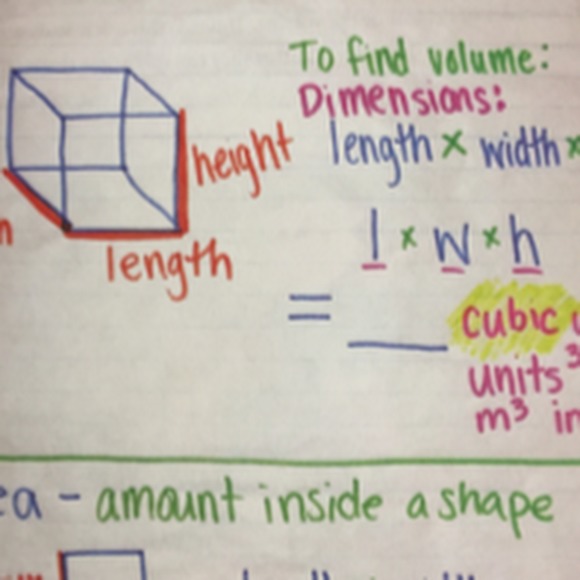 To find volume:
Dimensions:
length x width x
height
l x w x h
length
= ___ cubic
units³
m³ in
ea - amount inside a shape